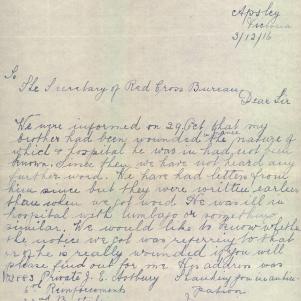 Apsley
Victoria
3/12/16
To
The Secretary of Red Cross Bureau
Dear Sir
We were informed on 29 Oct that my
brother had been wounded the nature of
which & hospital he was in had not been
known. Since then we have not heard any
further word. We have had letters from
him since but they were written earlier
than when we got word. He was ill in
hospital with lumbago or something
similar. We would like to know whether
the notice we got was referring to that
or if he is really wounded if you will
please find out for me His address was
Private J. E.
Thanking you in antici-
Reinforcements
pation